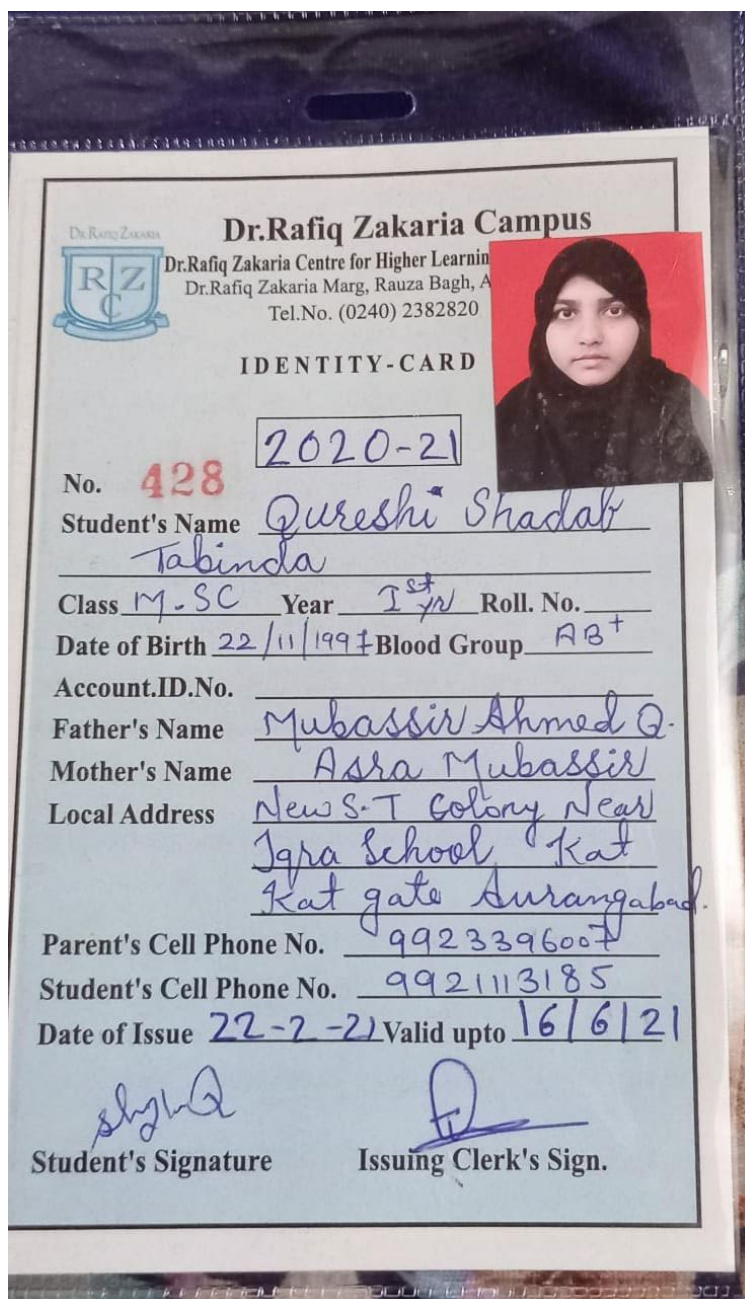 Dr.Rafiq Zakaria Campus
DR.RAFIQ ZAKARIA
R Z C
Dr.Rafiq Zakaria Centre for Higher Learnin
Dr.Rafiq Zakaria Marg, Rauza Bagh, A
Tel.No. (0240) 2382820
IDENTITY-CARD
2020-21
No. 428
Student's Name Qureshi Shadab
Tabinda
Class M.SC Year Ist yr Roll. No.
Date of Birth 22/11/1997 Blood Group AB+
Account.ID.No.
Father's Name Mubassir Ahmed Q.
Mother's Name Asra Mubassir
Local Address New S.T Colony Near
Iqra School Kat
Kat gate Aurangabad.
Parent's Cell Phone No. 9923396007
Student's Cell Phone No. 9921113185
Date of Issue 22-2-21 Valid upto 16/6/21
Student's Signature Issuing Clerk's Sign.